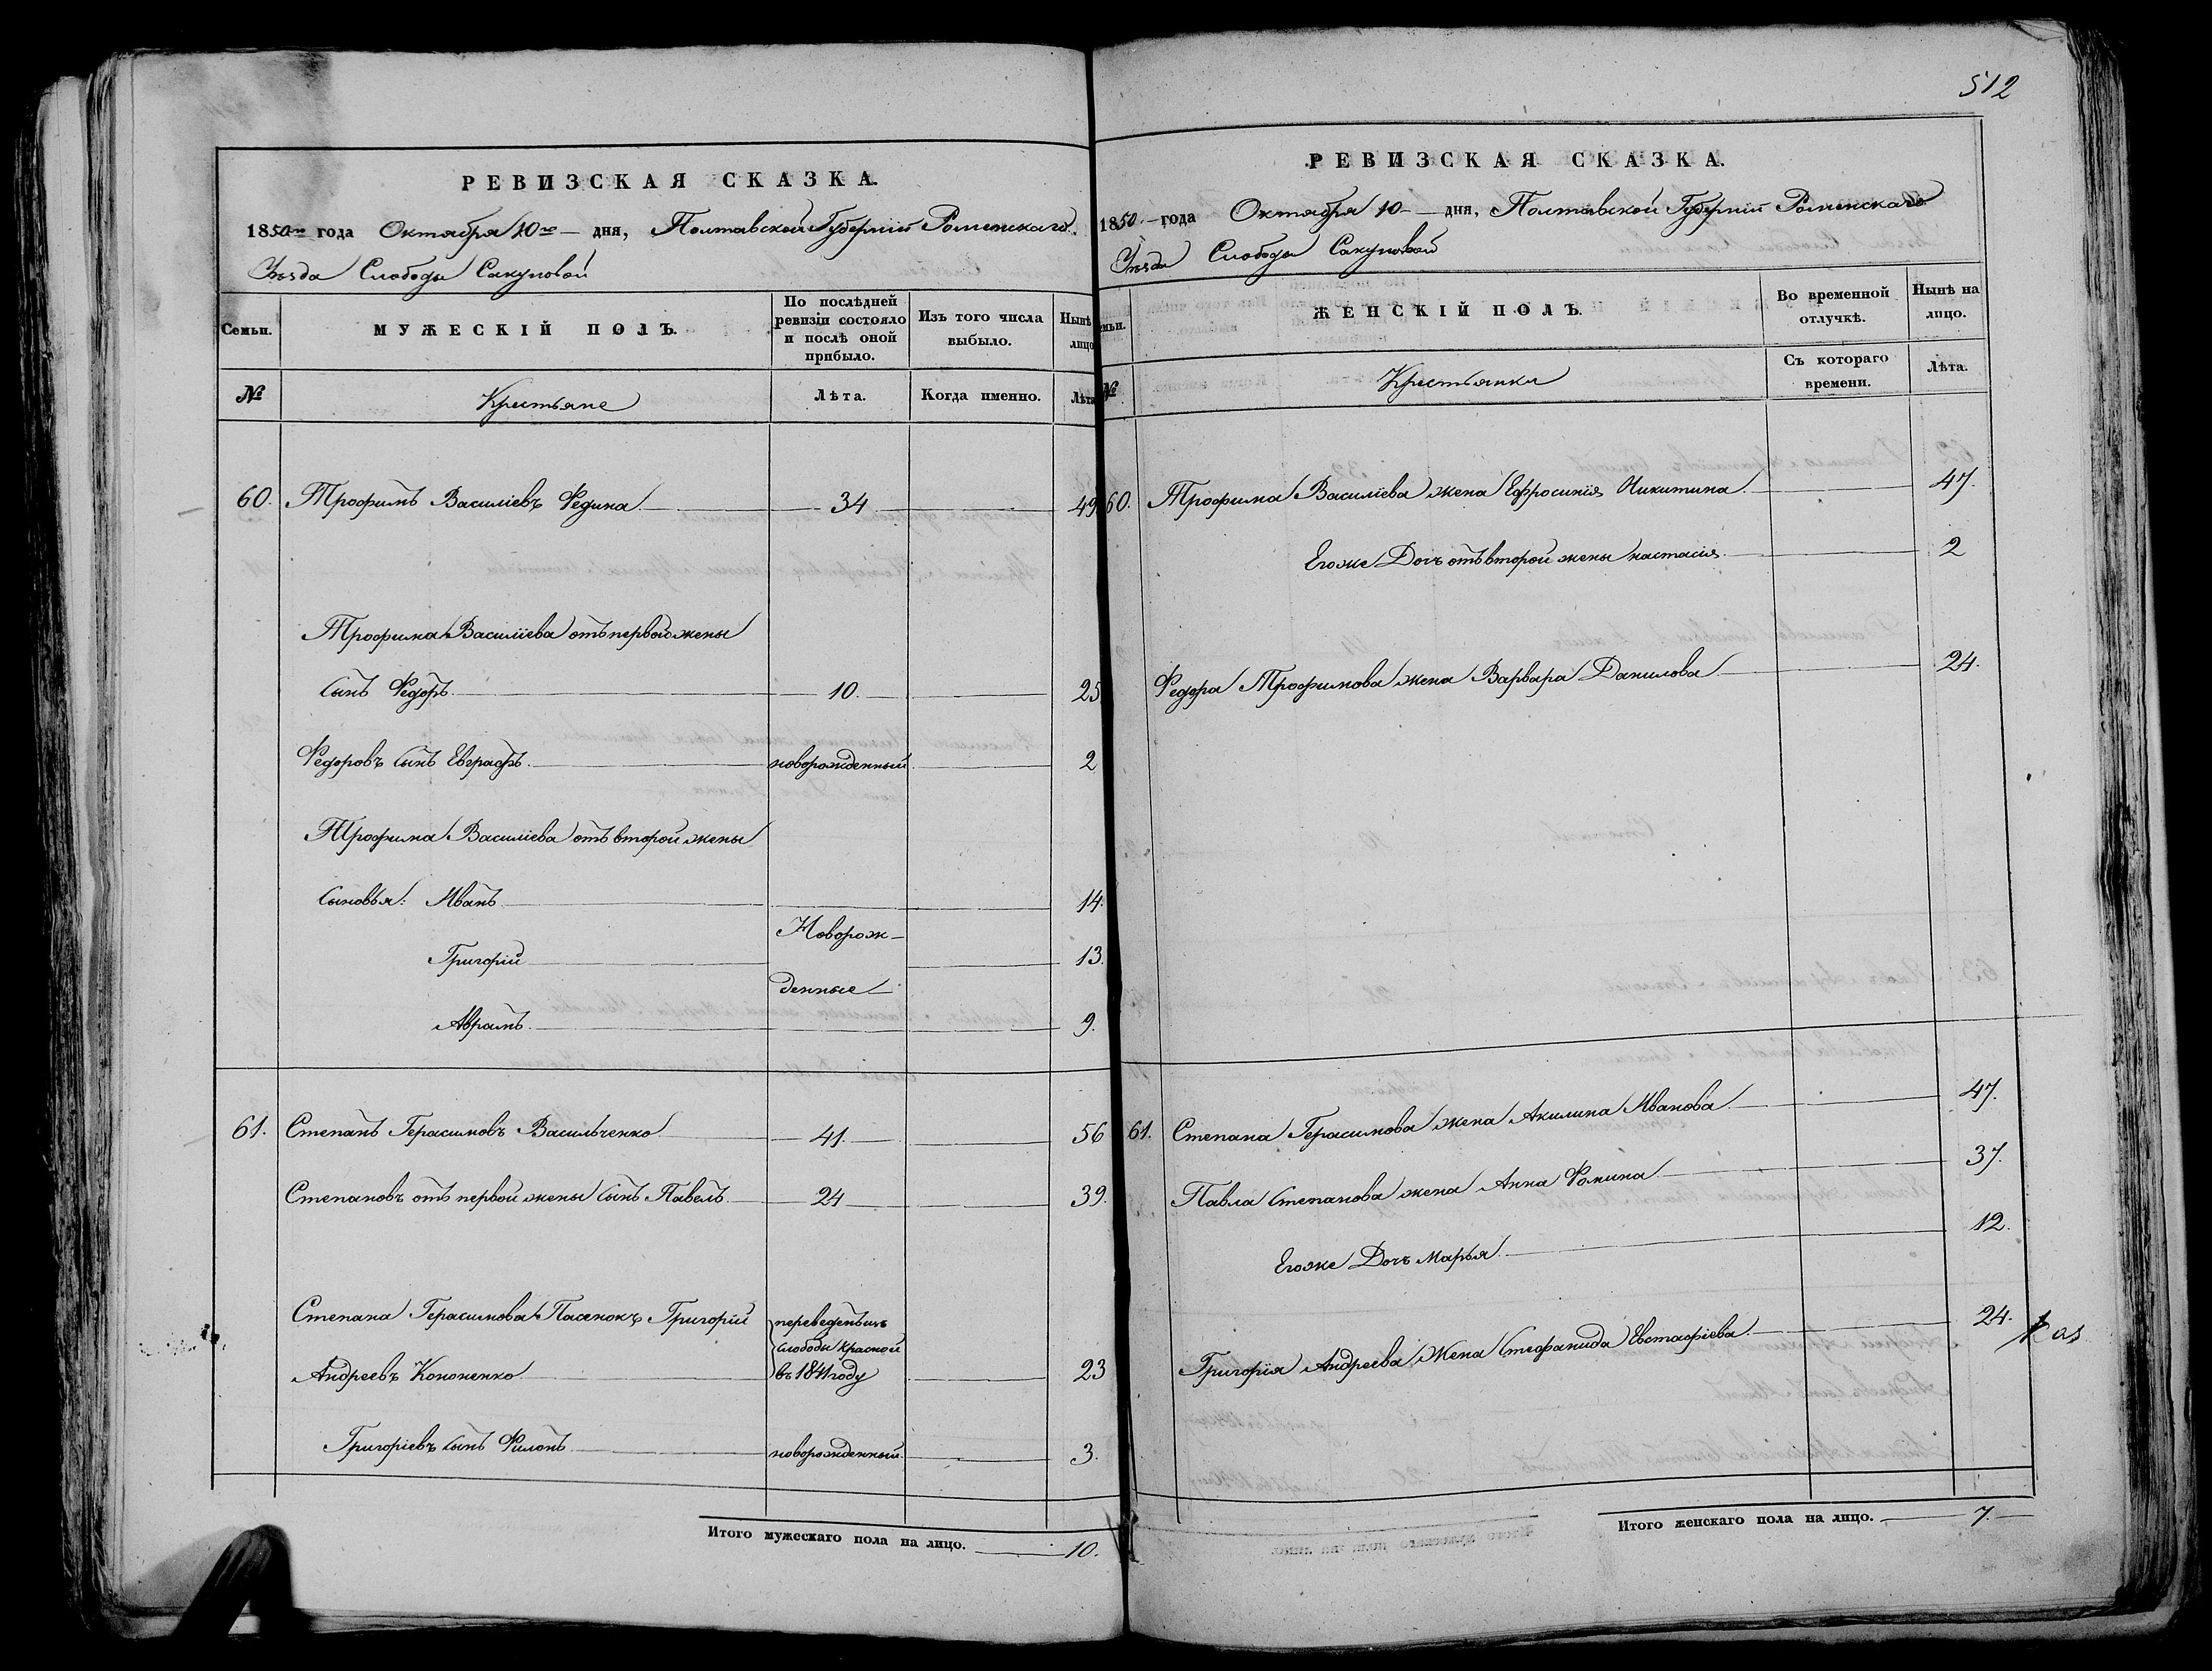 РЕВИЗСКАЯ СКАЗКА.
1850го года Октября 10го дня, Полтавской Губерніи Роменскаго
Уѣзда Слободы Сакуновой
Семьи.
МУЖЕСКІЙ ПОЛЪ.
По послѣдней ревизіи состояло и послѣ оной прибыло.
Изъ того числа выбыло.
Нынѣ
лицо
№
Крестьяне
Лѣта.
Когда именно.
Лѣта
60. Трофимъ Василіевъ Редина 34 49
Трофима Василіева отъ первой жены
сынъ Федоръ 10. 25
Федоровъ сынъ Евграфъ новорожденный 2
Трофима Василіева отъ второй жены
сыновья: Иванъ 14.
Новорож-
Григорій 13.
денные
Аврамъ 9.
61. Степанъ Герасимовъ Васильченко 41. 56
Степановъ отъ первой жены сынъ Павелъ 24 39.
Степана Герасимова Пасенокъ Григорій переведенъ изъ
слободы Красной
Андреевъ Кононенко въ 1841 году 23
Григоріевъ сынъ Филонъ новорожденный. 3.
Итого мужескаго пола на лицо. 10.
512
РЕВИЗСКАЯ СКАЗКА.
1850 года Октября 10 дня, Полтавской Губерніи Роменскаго
Уѣзда Слободы Сакуновой
мьи.
ЖЕНСКІЙ ПОЛЪ.
Во временной отлучкѣ.
Нынѣ на лицо.
№
Крестьянки
Съ котораго времени.
Лѣта.
60. Трофима Василіева жена Ефросинія Никитина 47.
Егоже Дочь отъ второй жены настасія 2
Федора Трофимова жена Варвара Данилова 24.
61. Степана Герасимова жена Акилина Иванова 47.
Павла Степанова жена Анна Фомина 37.
Егоже Дочь Марья 12.
Григорія Андреева Жена Стефанида Евстафіева 24.
Итого женскаго пола на лицо. 7.